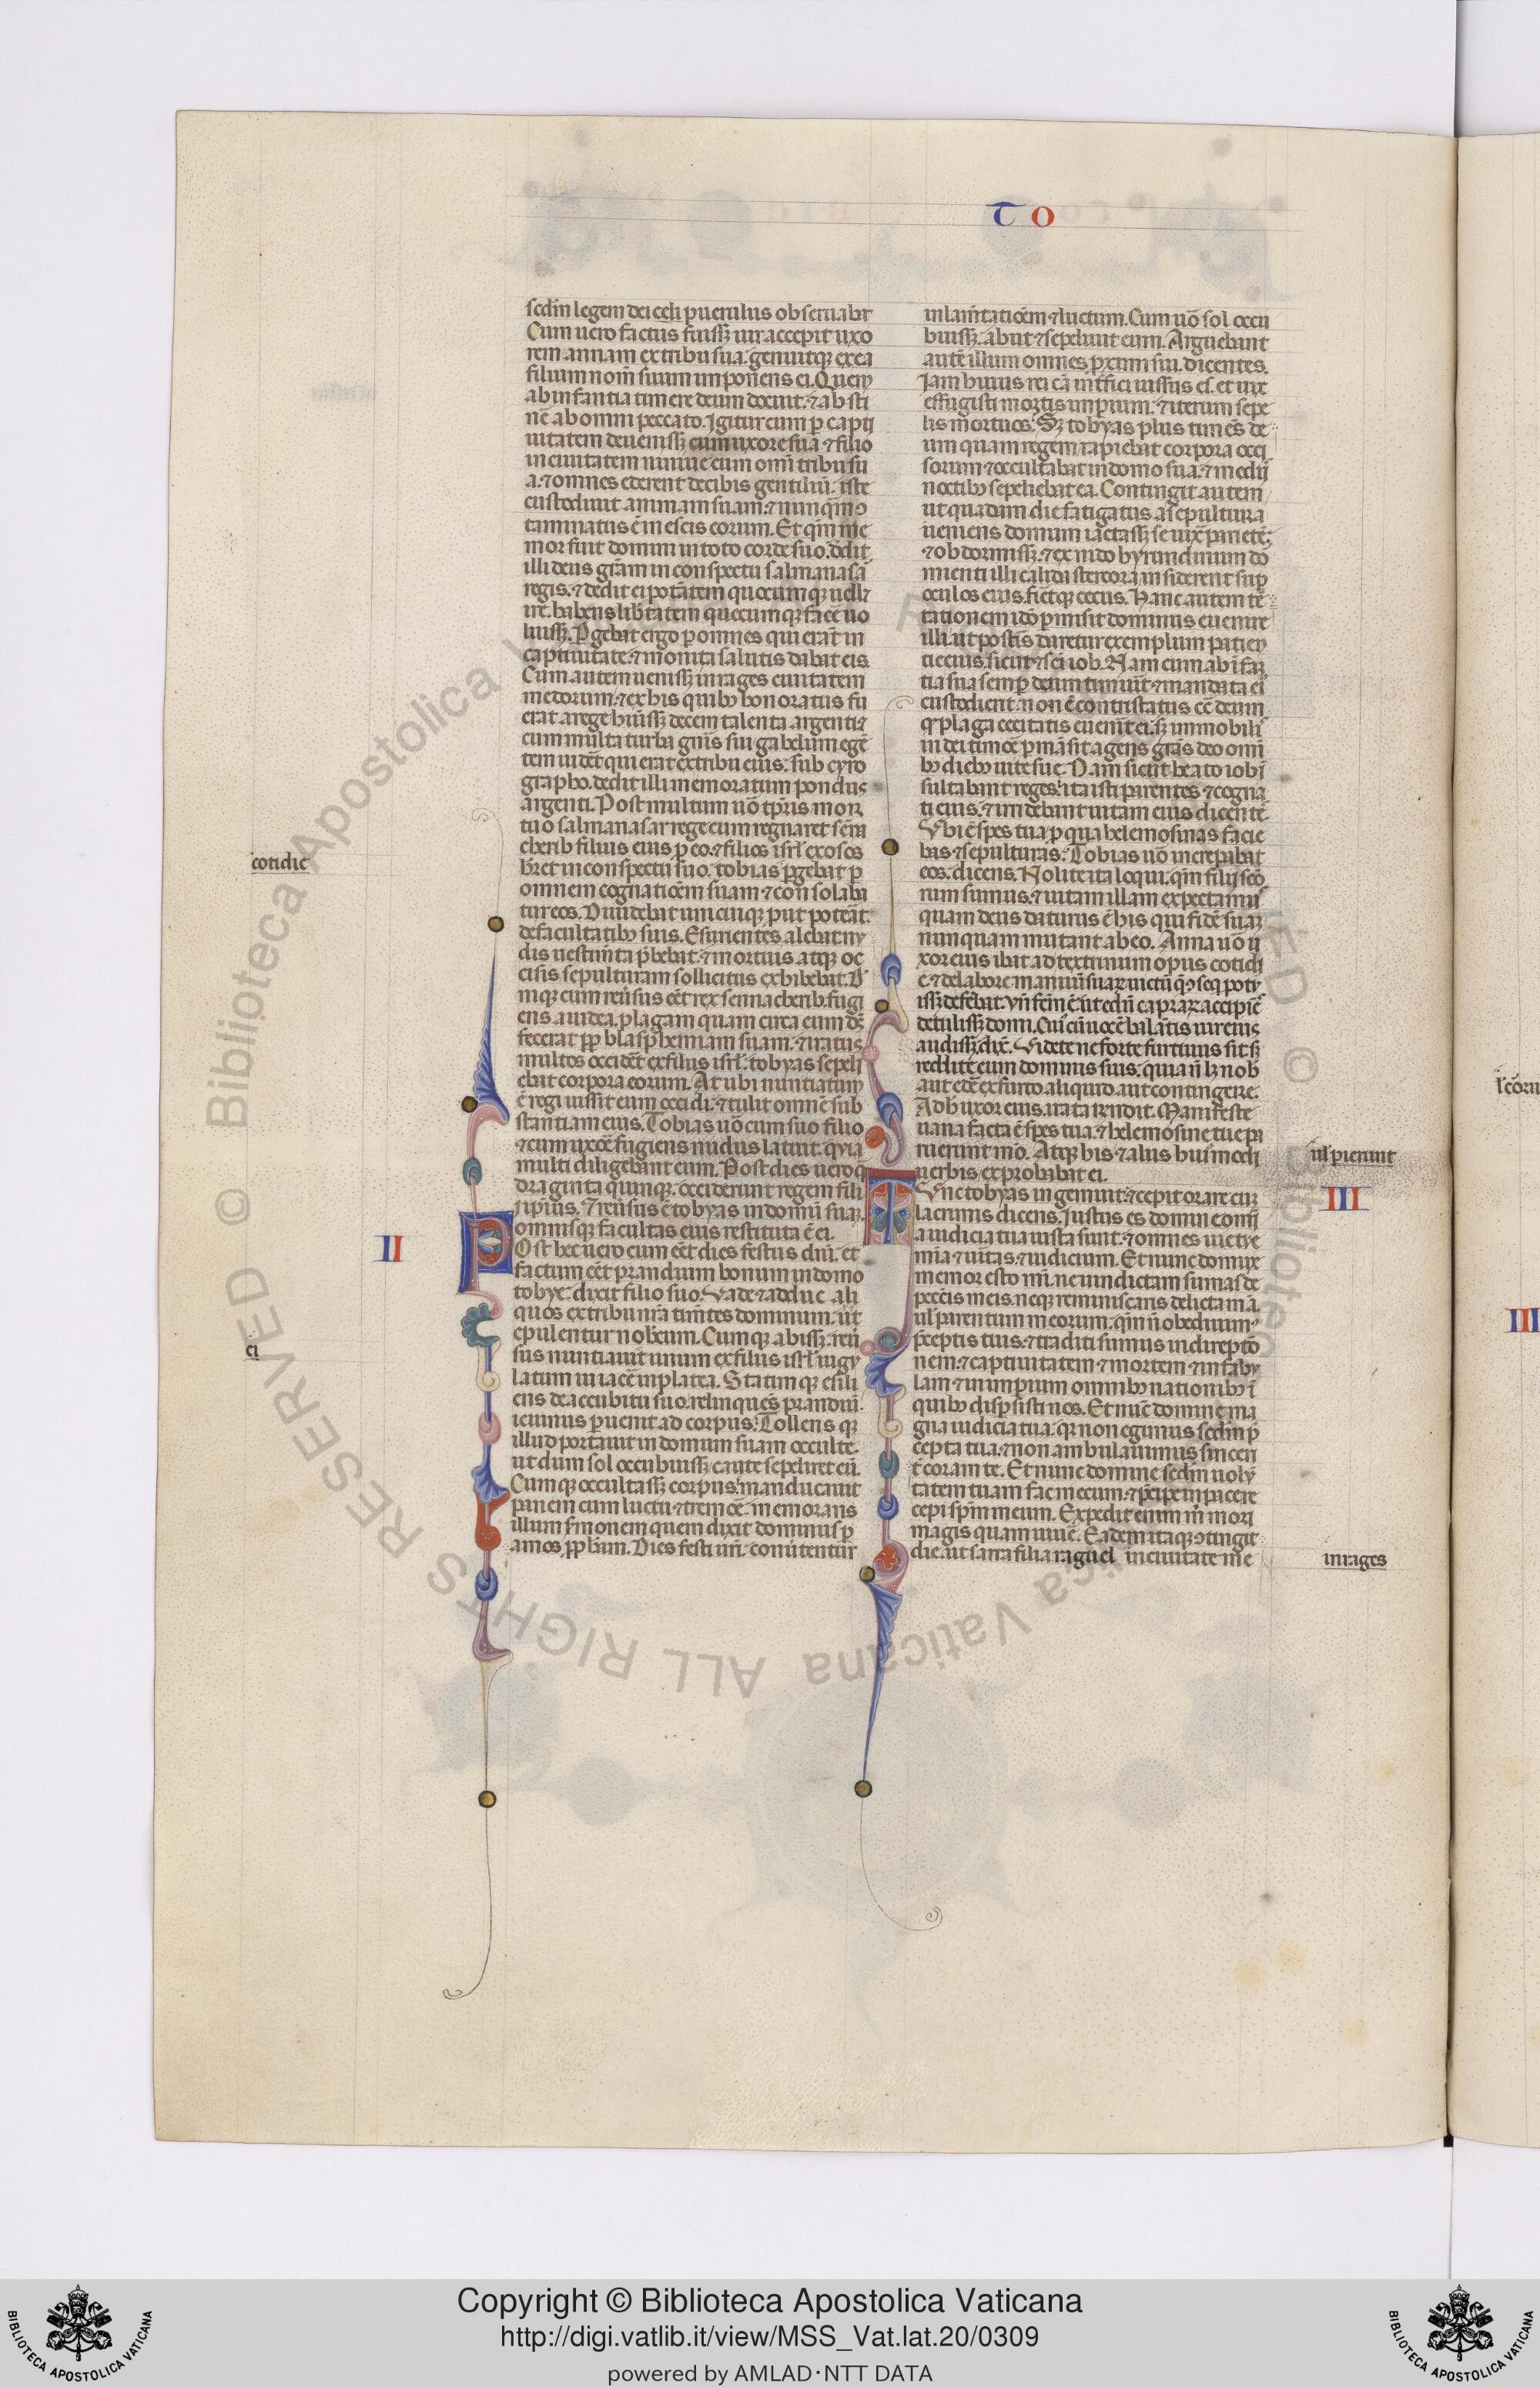 TO
sedm legem dei celi puerulus obseruabat
Cum uero factus fuissꝫ uir accepit uxo
rem annam ex tribu sua. genuitqꝫ ex ea
filium nom̄ suum imponens ei. Quem
ab infantia timere deum docuit. ⁊ absti
nē ab omni peccato. Igitur cum ꝑ capti
uitatem deuenissꝫ cum uxore sua ⁊ filio
in ciuitatem niniue cum om̄i tribu su
a. ⁊ omnes ederent de cibis gentiliū. iste
custodiuit animam suam. ⁊ nunq̄m ꝯ
taminatus ē in escis eorum. Et qm̄ me
mor fuit domini in toto corde suo. dedit
illi deus gr̄am in conspectu salmanasa
regis. ⁊ dedit ei potātem quocumqꝫ uellꝫ
ire. habens lib̄tatem quecumqꝫ facē uo
luissꝫ. Pgebat ergo ꝑ omnes qui erāt in
captiuitate. ⁊ monita salutis dabat eis.
Cum autem uenissꝫ in rages ciuitatem
medorum. ⁊ ex his quibꝫ honoratus fu
erat a rege hūissꝫ decem talenta argenti. ⁊
cum multa turba gn̄is sui gabelum egē
tem uidēt qui erat ex tribu eius. sub cyro
grapho. dedit illi memoratum pondus
argenti. Post multum uō tp̄ris mor
tuo salmanasar rege cum regnaret sēna
cherib filius eius ꝑ eo. ⁊ filios isrl̄ exosos
hr̄et in conspectu suo. tobias ꝑgebat ꝑ
omnem cognatiōem suam ⁊ consolaba
tur eos. Diuidebat unicuiqꝫ put poteāt.
de facultatibꝫ suis. Esurientes alebat nu
dis uestim̄ta p̄bebat. ⁊ mortuis atqꝫ oc
cisis sepulturam sollicitus exhibebat. D
niqꝫ cum reūsus eēt rex sennacherib. fugi
ens a iudea. plagam quam circa eum dꝫ
fecerat ꝓp̄ blasphemiam suam. ⁊ iratus
multos occidēt ex filiis isrl̄. tobyas sepeli
ebat corpora eorum. At ubi nuntiatum
ē regi iussit eum occidi. ⁊ tulit omnē sub
stantiam eius. Tobias uō cum suo filio
⁊ cum uxoē fugiens nudus latuit. quia
multi diligebant eum. Post dies uero q̄
draginta quinqꝫ. occiderunt regem fili
i ipius. ⁊ reūsus ē tobyas in domū suaꝫ.
omnisqꝫ facultas eius restituta ē ei.
Post hec uero cum eēt dies festus dn̄i. et
factum eēt prandium bonum in domo
tobye. dixit filio suo. Vade ⁊ adduc ali
quos ex tribu nr̄a tim̄tes dominum. ut
epulentur nobcum. Cumqꝫ abissꝫ. reū
sus nuntiauit unum ex filiis isrl̄ iugu
latum iacē in platea. Statimqꝫ exili
ens de accubitu suo. relinquēs prandiū.
ieiunus ꝑuenit ad corpus. Tollensqꝫ
illud portauit in domum suam occulte.
ut dum sol occubuissꝫ. caute sepeliret eū.
Cumqꝫ occultassꝫ corpus. manducauit
panem cum luctu ⁊ tremoē. memorans
illum s̄monem quem dixit dominus ꝑ
amos ꝓph̄am. Dies festi ur̄i. conūtentur
in lam̄tatiōem ⁊ luctum. Cum uō sol occu
buissꝫ. abiit ⁊ sepeliuit eum. Arguebant
autē illum omnes ꝓximi sui. dicentes.
Iam huius rei cā intfici iussus es. et uix
effugisti mortis imꝑium. ⁊ iterum sepe
lis mortuos. Sꝫ tobyas plus timēs de
um quam regem rapiebat corpora occi
sorum ⁊ occultabat in domo sua. ⁊ mediis
noctibꝫ sepeliebat ea. Contingit autem
ut quadam die fatigatus a sepultura
ueniens domum iactassꝫ se iux̄ parietē.
⁊ obdormissꝫ. ⁊ ex nido hyrundinum do
mienti illi calida stercora insiderent suꝑ
oculos eius. fietqꝫ cecus. Hanc autem tē
tationem ido ꝑmisit dominus euenire
illi. ut postis daretur exemplum patien
tie eius. sicut ⁊ sc̄i iob. Nam cum ab īfaꝫ
tia sua semꝑ deum timuit. ⁊ mandata ei
custodient. non ē contristatus cē deum
qꝫ plaga cecitatis euenit ei. sꝫ immobilis
in dei timoē ꝑmāsit. agens grās deo omī
bꝫ diebꝫ uite sue. Nam sicut beato iob ī
sultabant reges. ita isti parentes ⁊ cogna
ti eius. ⁊ iridebant uitam eius dicente.
Vbi ē spes tua. ꝑ qua helemosinas facie
bas ⁊ sepulturas. Tobias uō increpabat
eos. dicens. Nolite ita loqui. qm̄ filij scōꝫ
rum sumus. ⁊ uitam illam expectamus
quam deus daturus ē his qui fidē suaꝫ
nunquam mutant ab eo. Anna uō u
xor eius ibat ad textrinum opus cotidi
e. ⁊ de labore manuū suaꝝ uictū qꝫ seq poty
issꝫ defebat. Vn̄ fcm̄ ē ut edū capraꝝ accipiē
detulissꝫ domi. Cuꝰ cū uocē balātis uir eius
audissꝫ. dix̄. Videte ne forte furtiuus sit. sꝫ
reddite eum dominis suis. quia ū lꝫ nob
aut edē ex furto aliquid aut contingere.
Ad h̄ uxor eius. irata rn̄dit. Manifeste
uana facta ē spes tua. ⁊ helemosine tue pa
ruerunt mō. Atqꝫ his ⁊ aliis huiꝰmodi
uerbis exprobabat ei.
Tvnc tobyas ingemuit. ⁊ cepit orare cuꝫ
lacrimis dicens. Iustus es domine ⁊ omīa
iudicia tua iusta sunt. ⁊ omnes uie tue
mīa ⁊ uitas ⁊ iudicium. Et nunc domine
memor esto mī. ne uindictam sumas de
pecc̄is meis. neqꝫ reminiscaris delicta mā.
ul̄ parentum meorum. qm̄ n̄ obediuimꝰ
p̄ceptis tuis. ⁊ traditi sumus in direptō
nem. ⁊ captiuitatem ⁊ mortem ⁊ in fabu
lam ⁊ in imꝑium omnibꝫ nationibꝫ ī
quibꝫ disꝑsisti nos. Et nūc domine ma
gna iudicia tua. qꝫ non egimus sedm p̄
cepta tua. ⁊ non ambulauimus sinceri
t̄ coram te. Et nunc domine sedm uolū
tatem tuam fac mecum. ⁊ p̄cipe in pace re
cepi spm̄ meum. Expedit enim m̄ mori
magis quam uiuē. Eadem itaqꝫ ꝯtigit
die. ut sarra filia raguel in ciuitate me
cotidie
II
ei
ul̄ pierunt
III
in rages
III
Copyright © Biblioteca Apostolica Vaticana
http://digi.vatlib.it/view/MSS_Vat.lat.20/0309
powered by AMLAD·NTT DATA
BIBLIOTECA APOSTOLICA VATICANA
BIBLIOTECA APOSTOLICA VATICANA
© Biblioteca Apostolica Vaticana ALL RIGHTS RESERVED